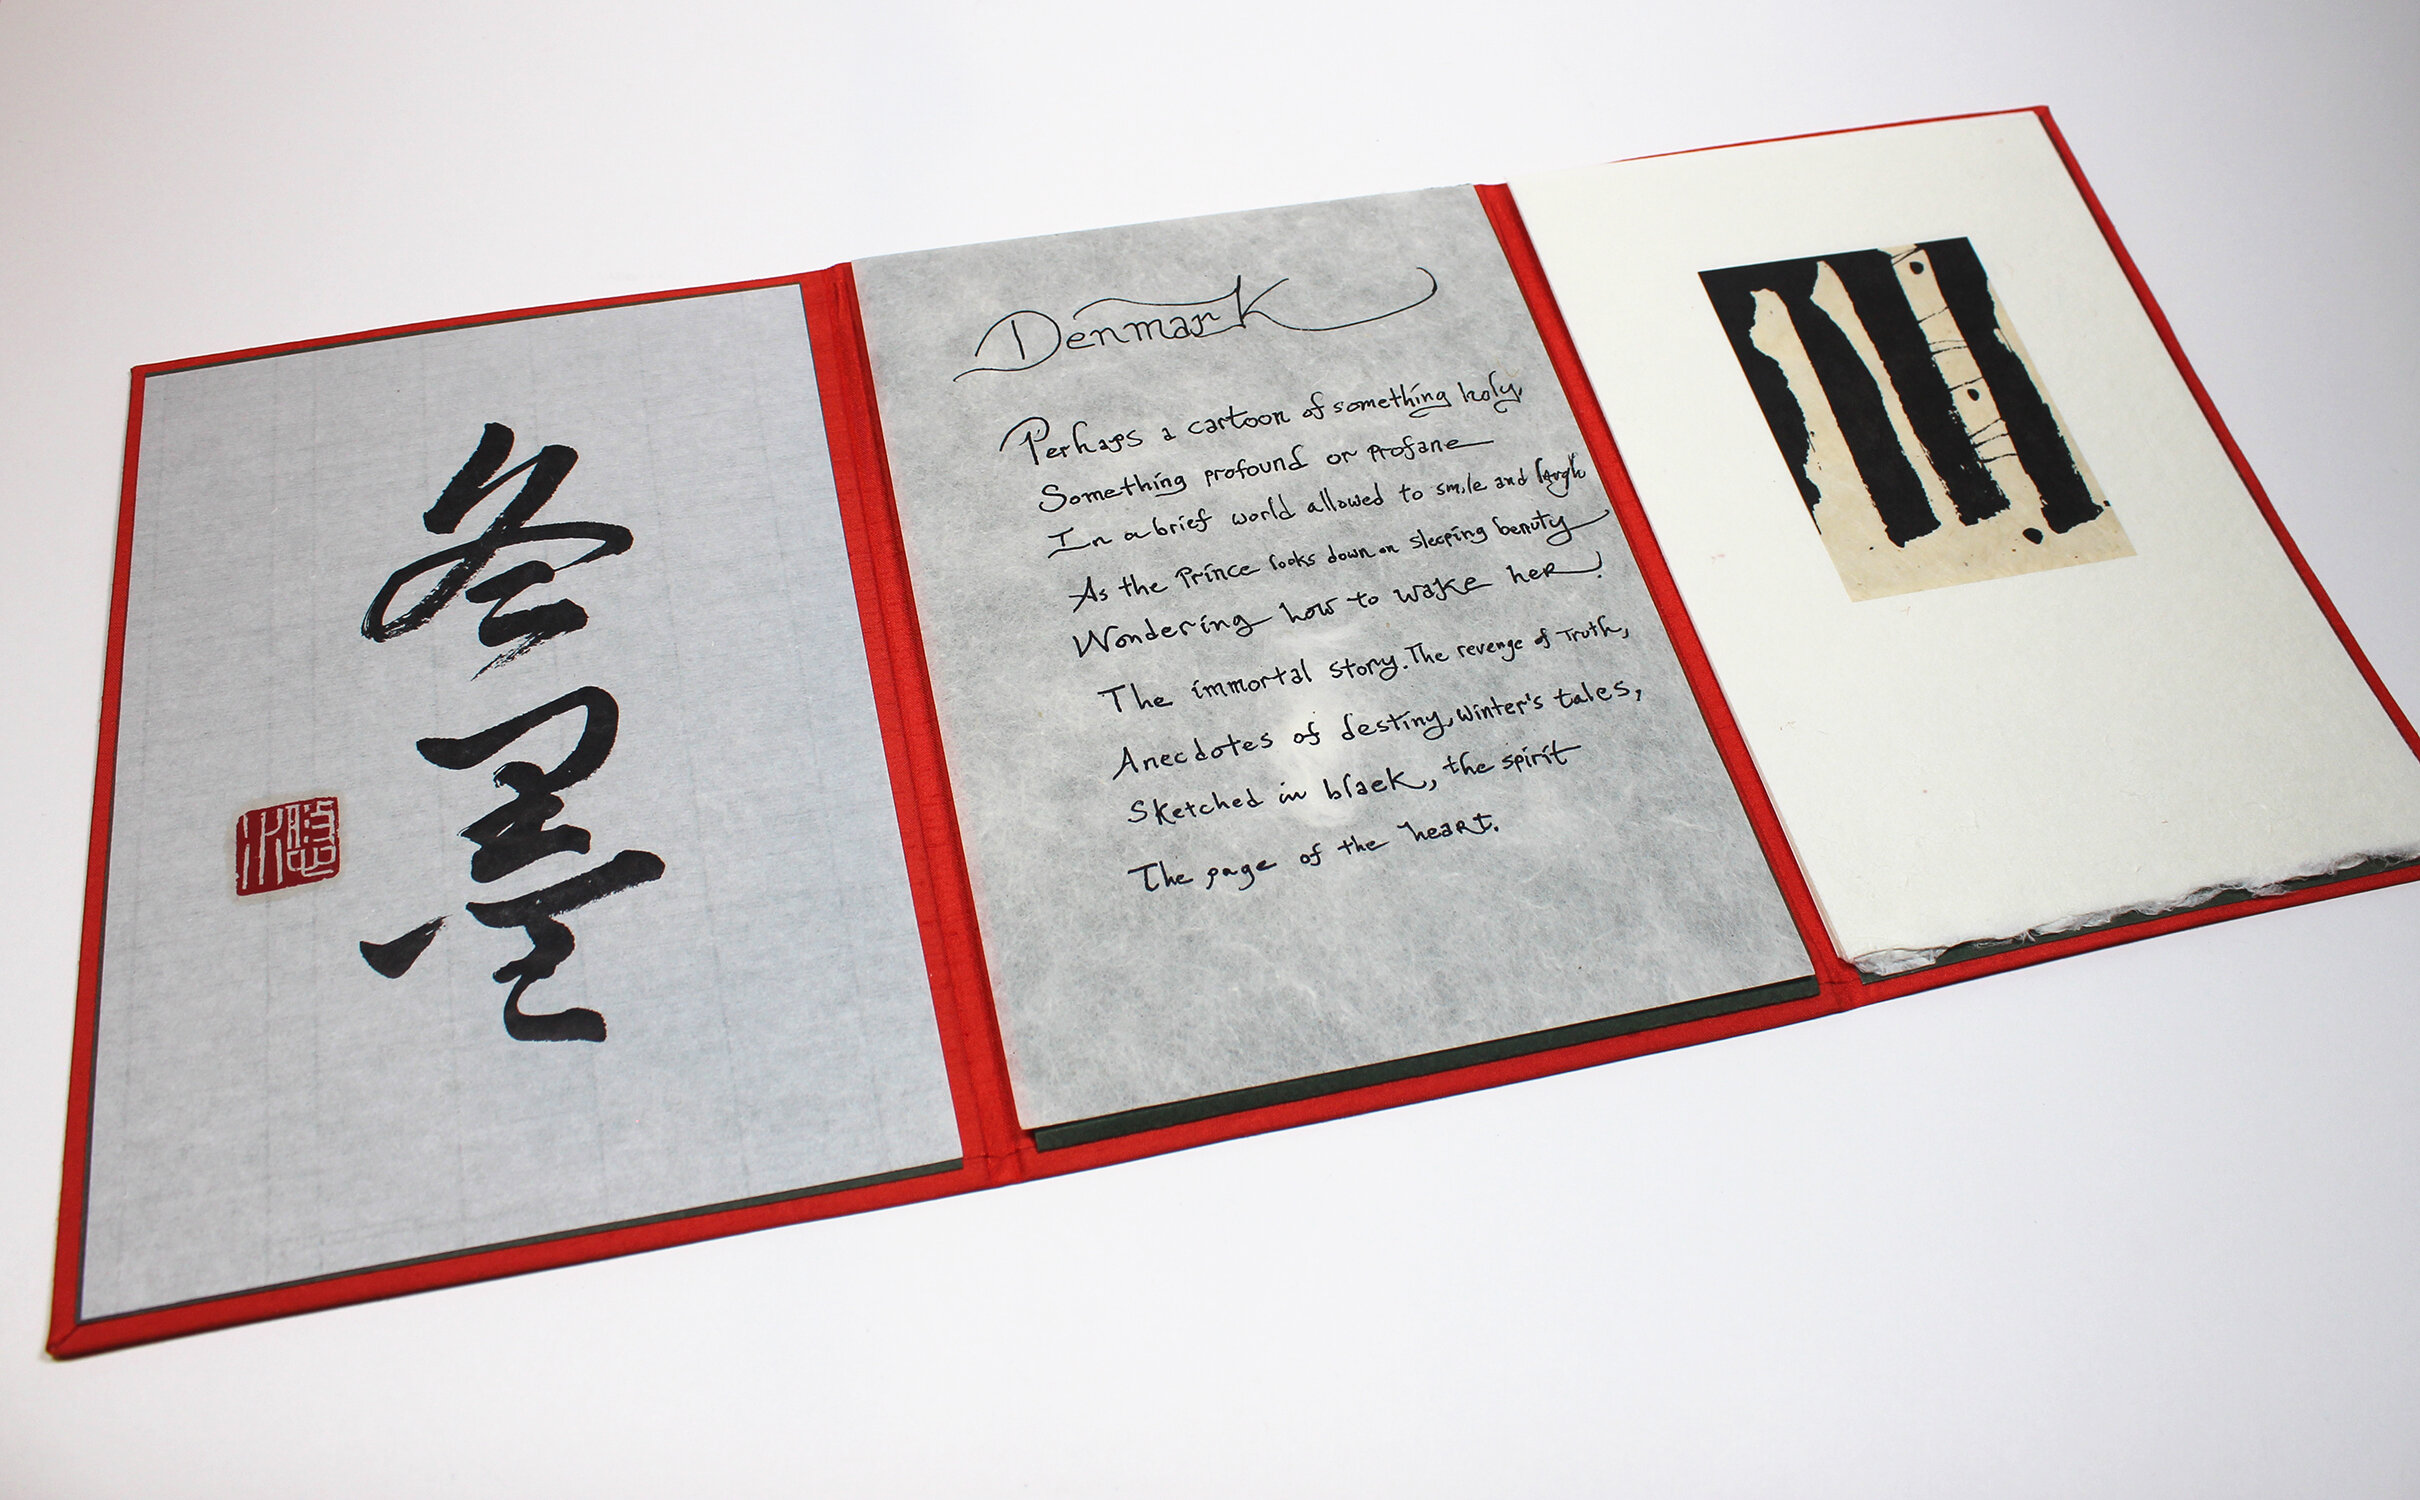 冬墨
Denmark
Perhaps a cartoon of something holy,
Something profound or profane
In a brief world allowed to smile and laugh
As the Prince looks down on sleeping beauty
Wondering how to wake her!
The immortal story. The revenge of Truth,
Anecdotes of destiny, Winter's tales,
Sketched in black, the spirit
The page of the heart.